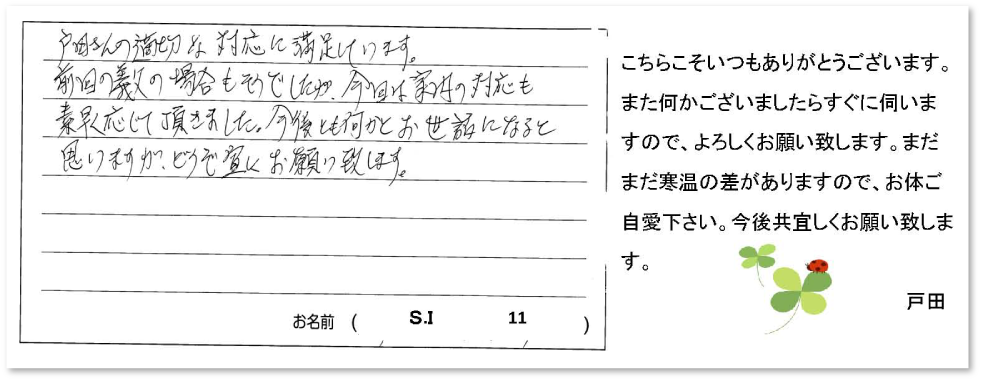 戸田さんの適切な対応に満足しています。
前回の義父の場合もそうでしたが、今回は家内の対応も
素早く応じて頂きました。今後とも何かとお世話になると
思いますが、どうぞ宜しくお願い致します。
お名前 ( S.I 11 )
こちらこそいつもありがとうございます。
また何かございましたらすぐに伺いま
すので、よろしくお願い致します。まだ
まだ寒温の差がありますので、お体ご
自愛下さい。今後共宜しくお願い致しま
す。
戸田